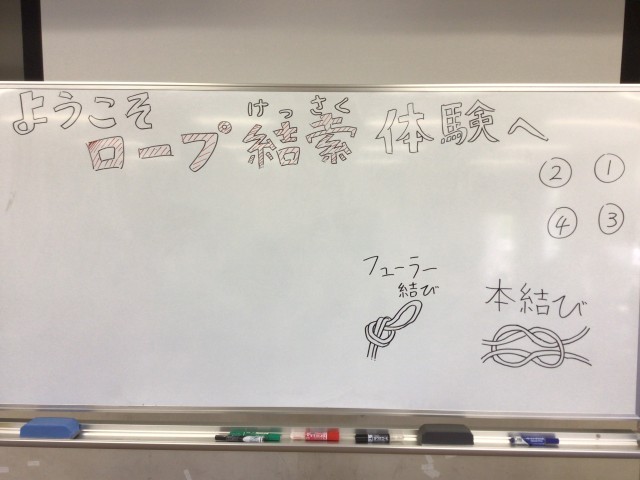 ようこそ
けっさく
ロープ結索体験へ
② ①
④ ③
フューラー
結び
本結び